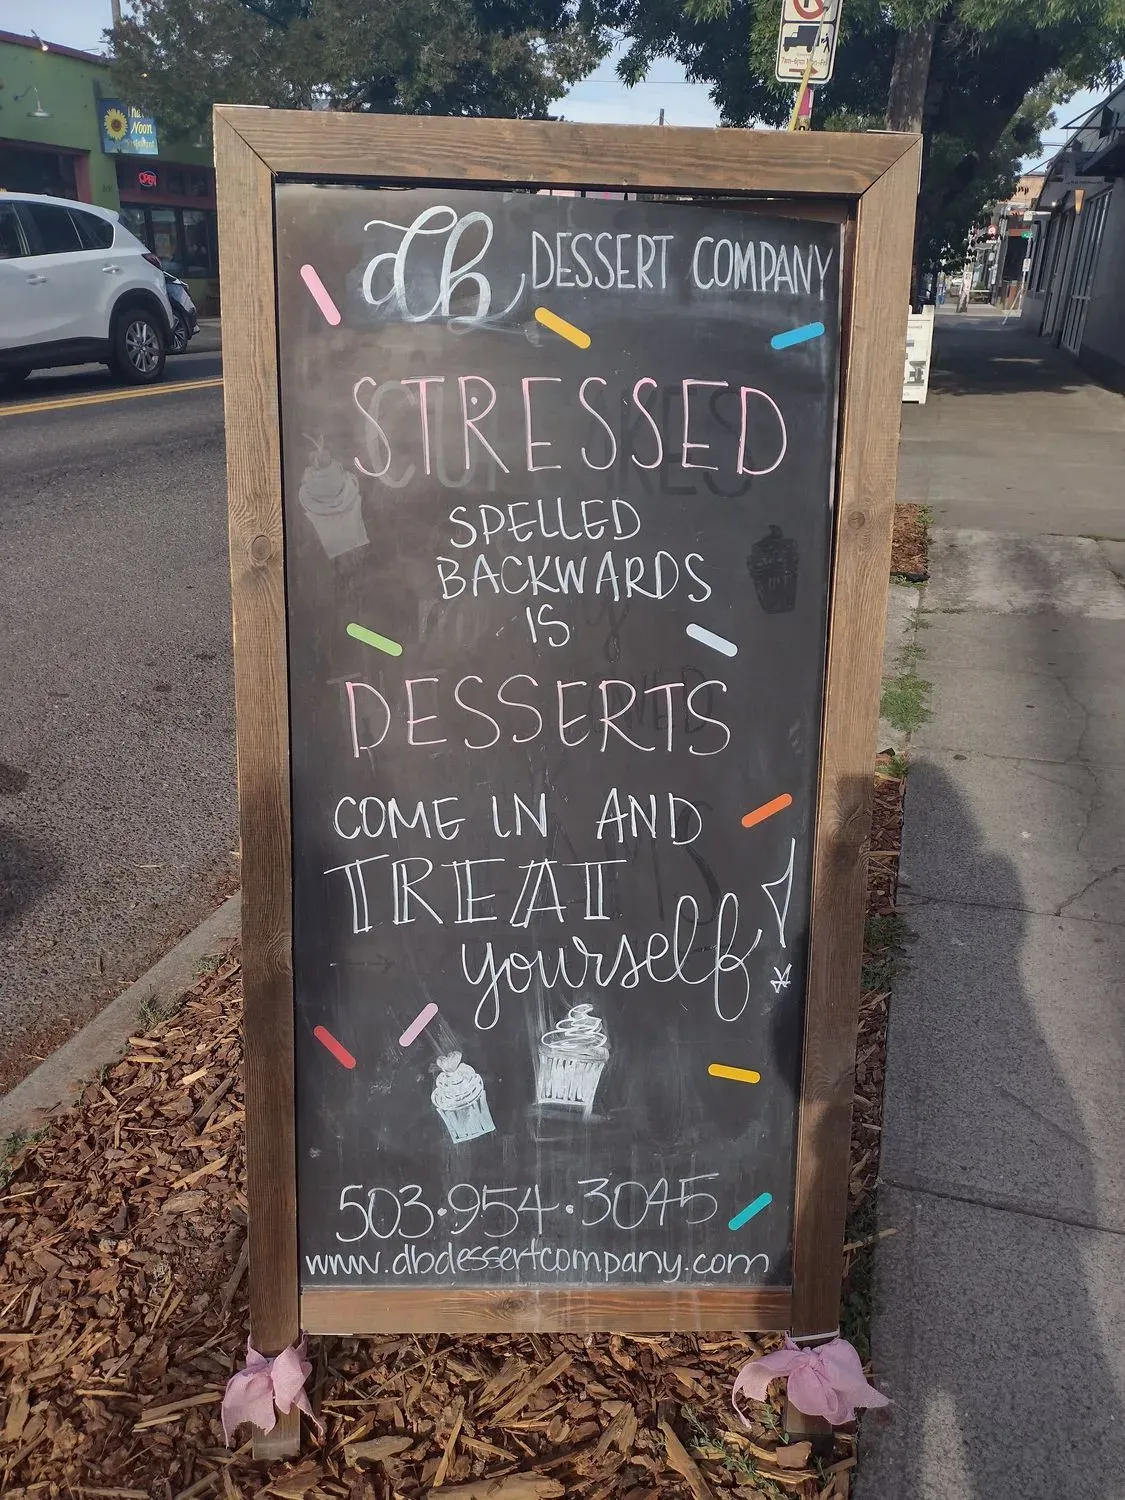 The
Noon
OPEN
7am-6pm Mon-Fri
db DESSERT COMPANY
STRESSED
SPELLED
BACKWARDS
IS
DESSERTS
COME IN AND
TREAT
yourself!
503·954·3045
www.dbdessertcompany.com